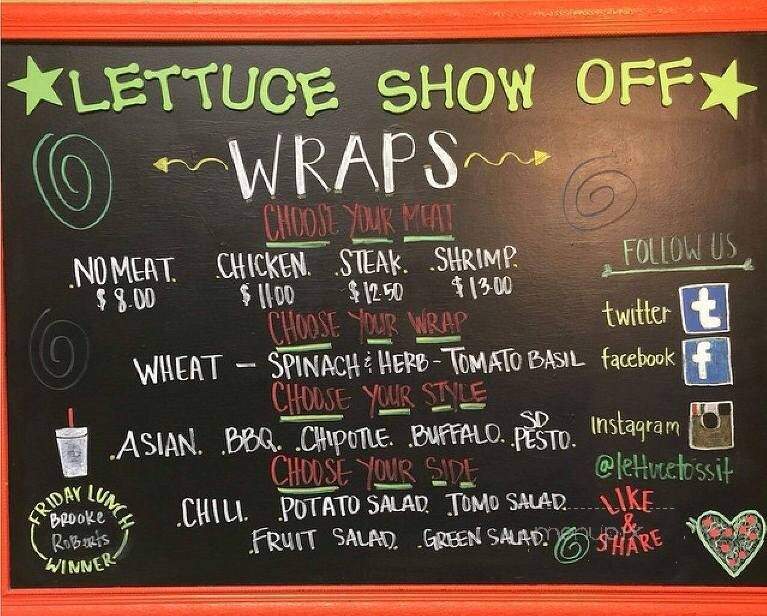 LETTUCE SHOW OFF
WRAPS
CHOOSE YOUR MEAT
.NO MEAT. .CHICKEN. .STEAK. .SHRIMP.
$8.00 $11.00 $12.50 $13.00
CHOOSE YOUR WRAP
WHEAT - SPINACH & HERB - TOMATO BASIL
CHOOSE YOUR STYLE
.ASIAN. .BBQ. .CHIPOTLE. .BUFFALO. SD PESTO.
CHOOSE YOUR SIDE
.CHILI. .POTATO SALAD. .TOMO SALAD.
.FRUIT SALAD. .GREEN SALAD.
FOLLOW US
twitter t
facebook f
Instagram
@lettucetossit
LIKE
&
SHARE
FRIDAY LUNCH
BROOKE
RoBerts
WINNER